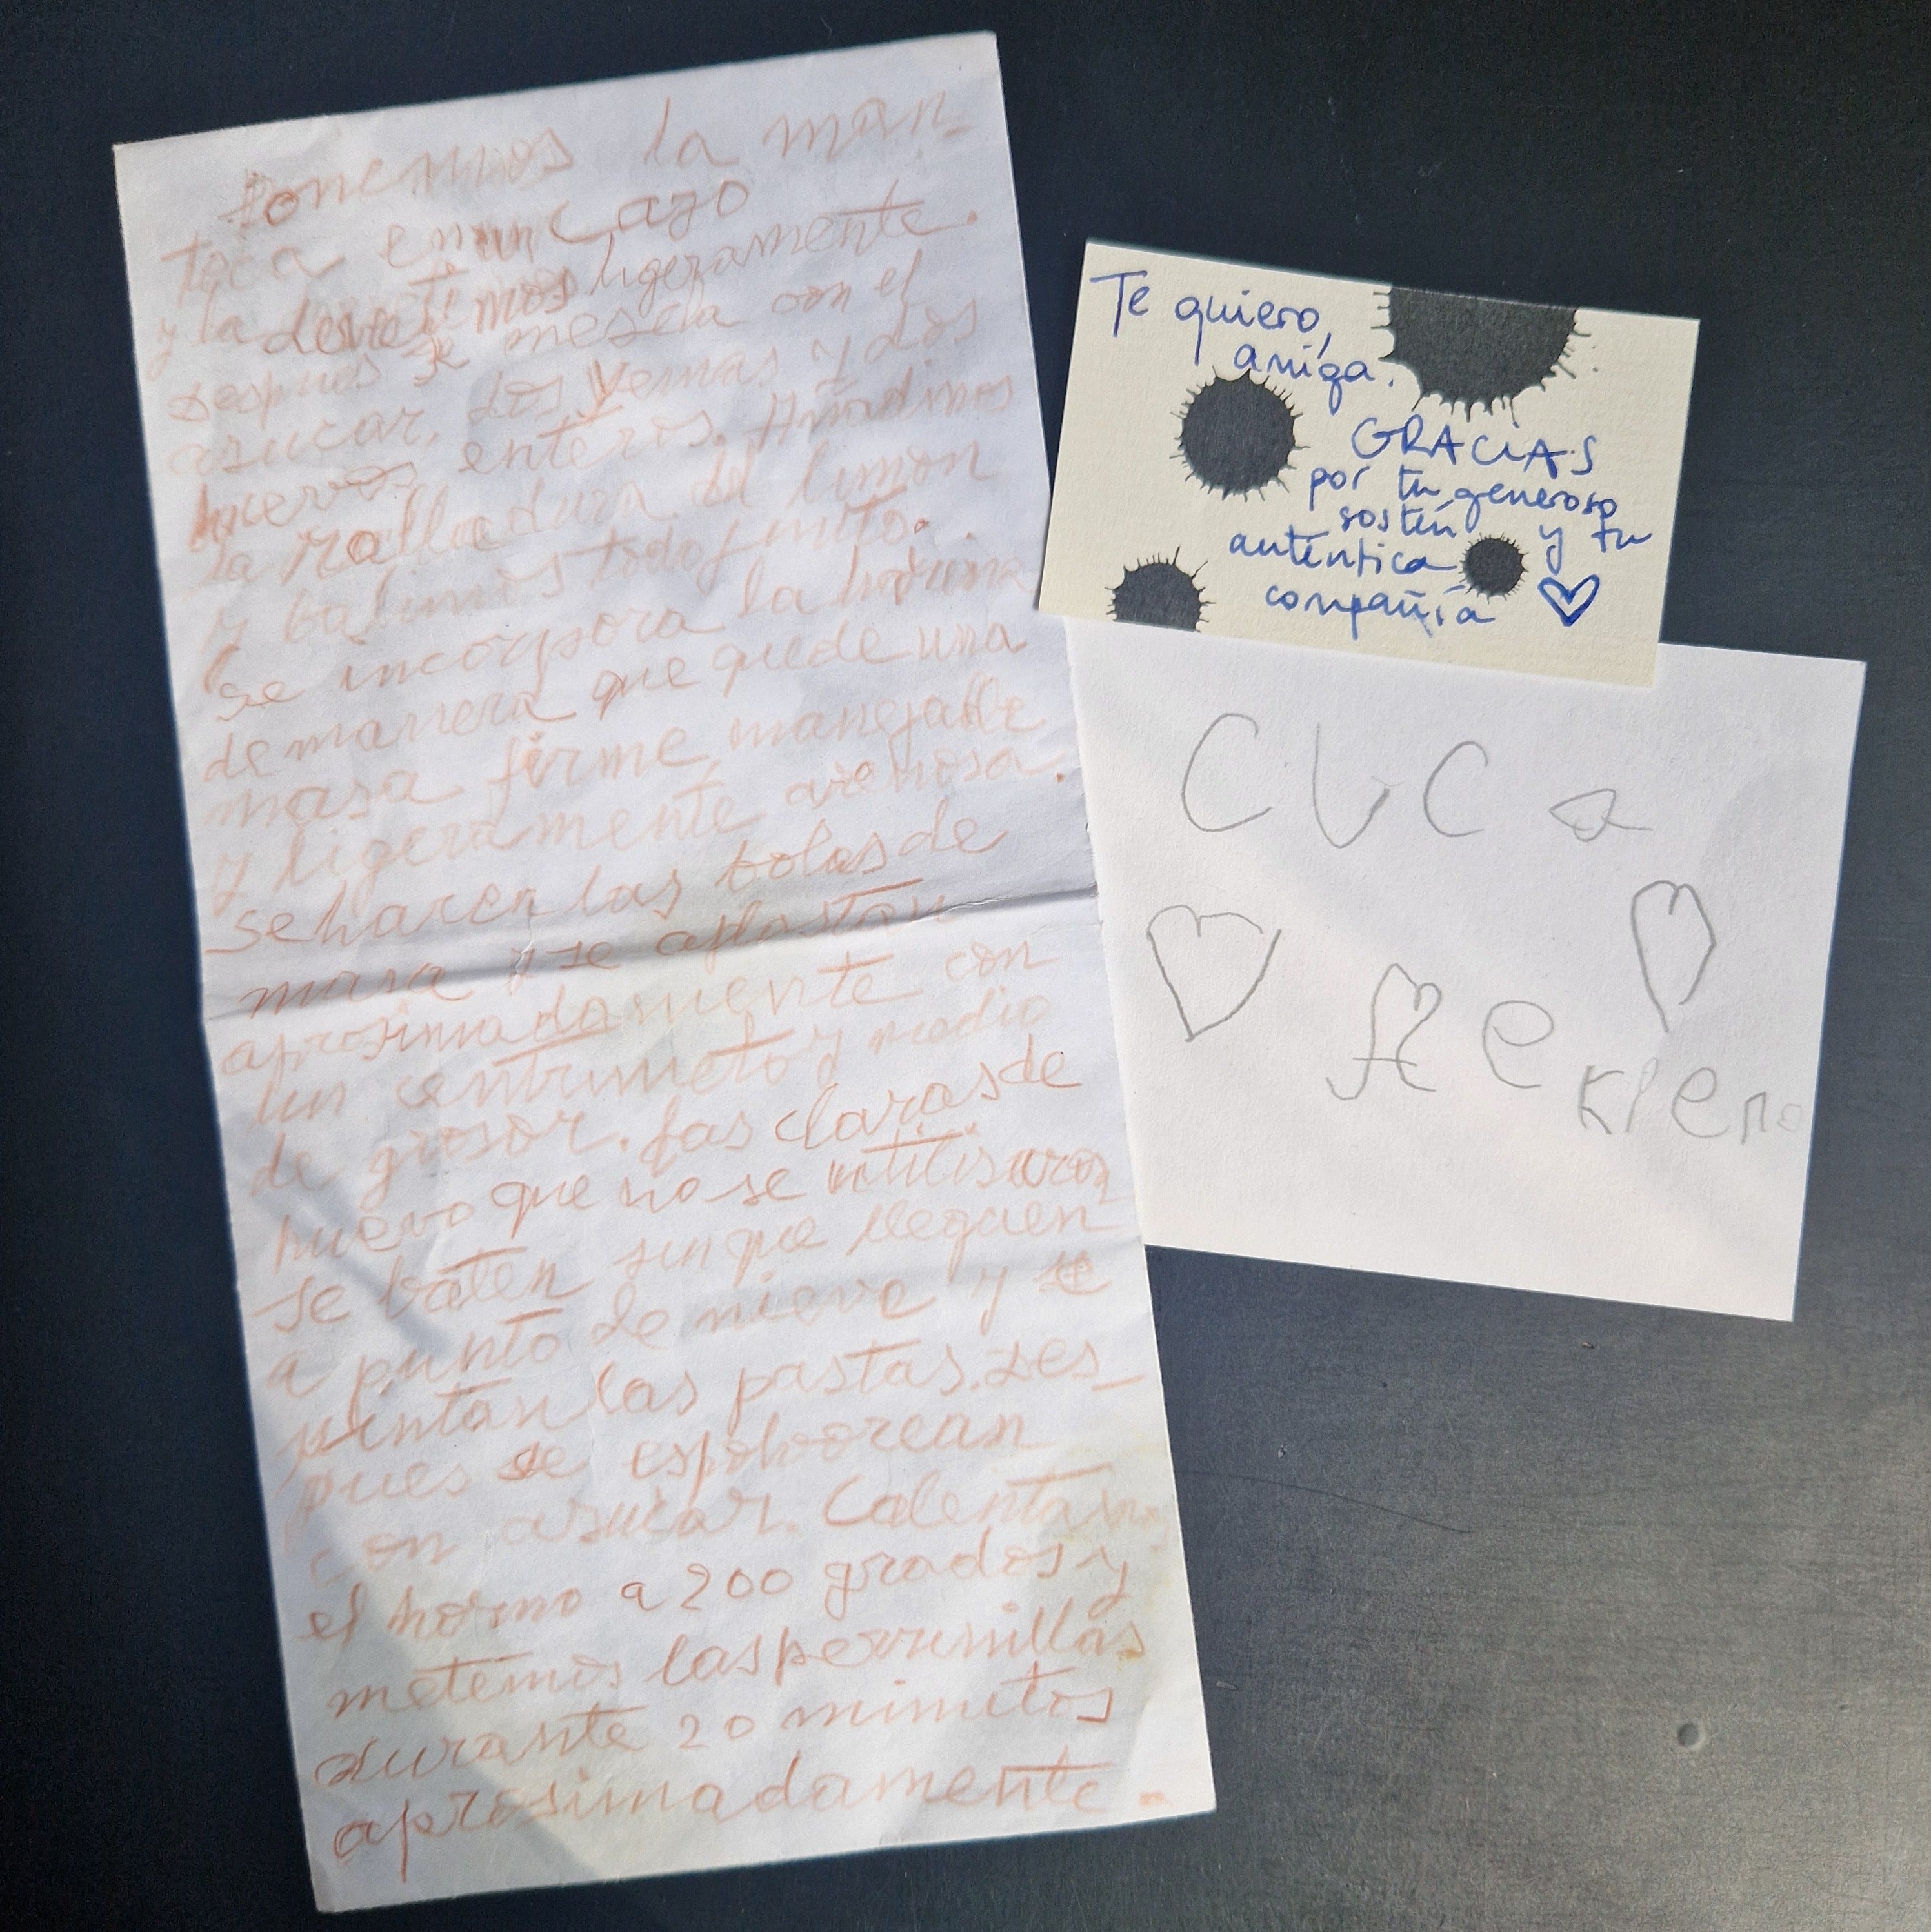 Ponemos la man-
toca en un cazo
y la derretimos ligeramente.
Despues se mescla con el
asucar, dos yemas y dos
huevos enteros. Añadimos
la ralladura del limon
y batimos todo junto.
se incorpora la harina
de manera que quede una
masa firme, manejable
y ligeramente arenosa.
se hacen las bolas de
masa y se aplastan
aprosimadamente con
un centrimeto y medio
de grosor. Las claras de
huevo que no se utilisaron
se baten sin que lleguen
a punto de nieve y se
pintan las pastas. Des-
pues se espolvorean
con asucar. Calentam
el horno a 200 grados y
metemos las perrunillas
durante 20 minutos
aprosimadamente.
Te quiero,
amiga.
GRACIAS
por tu generoso
sostén y tu
auténtica
compañía
CUCa
te
KIERO